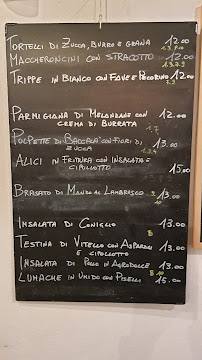 Tortelli di Zucca, Burro e Grana 12.00
Maccheroncini con Stracotto 12.00
1.3.7.9
Trippe in Bianco con Fave e Pecorino 12.00
Parmigiana di Melanzane con 12.00
crema di Burrata
Polpette di Baccalà con Fiori di 13.00
Zucca
Alici in Frittura con Insalata e 15.00
cipollotto
Brasato di Manzo al Lambrusco 13.00
Insalata di Coniglio 13.00
8
Testina di Vitello con Asparagi 13.00
e cipollotto
Insalata di Pollo in Agrodolce 13.00
Lumache in Umido con Piselli 15.00